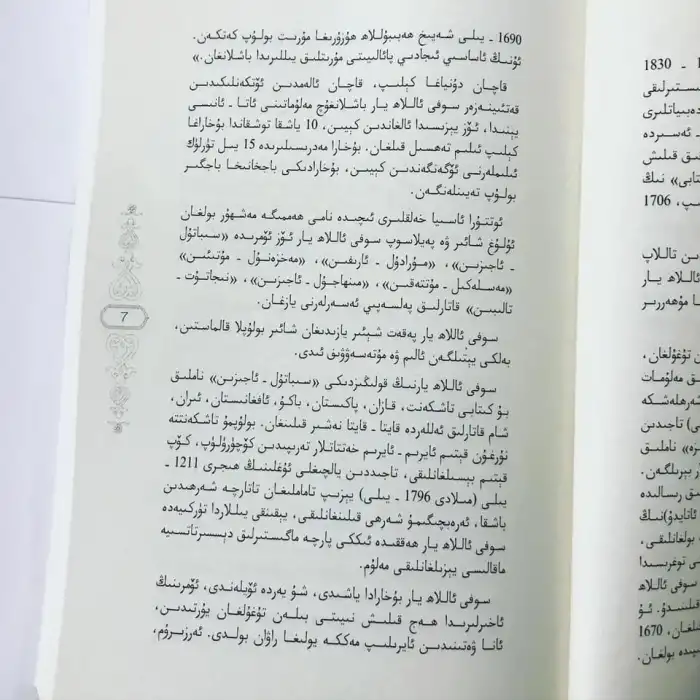 1690 - يىلى شەيخ ھەبىبۇللاھ ھۇزۇرىغا مۇرىت بولۇپ كەتكەن.
ئۇنىڭ ئاساسىي ئىجادىي پائالىيىتى مۇرىتلىق يىللىرىدا باشلانغان.»
قاچان دۇنياغا كېلىپ، قاچان ئالەمدىن ئۆتكەنلىكىدىن
قەتئىينەزەر سوفى ئاللاھ يار باشلانغۇچ مەلۇماتىنى ئاتا - ئانىسى
يېنىدا، ئۆز يېزىسىدا ئالغاندىن كېيىن، 10 ياشقا توشقاندا بۇخاراغا
كېلىپ ئىلىم تەھسىل قىلغان. بۇخارا مەدرىسىلىرىدە 15 يىل تۈرلۈك
ئىلىملەرنى ئۆگەنگەندىن كېيىن، بۇخارادىكى باجخانىخا باجگىر
بولۇپ تەيىنلەنگەن.
ئوتتۇرا ئاسىيا خەلقلىرى ئىچىدە نامى ھەممىگە مەشھۇر بولغان
ئۇلۇغ شائىر ۋە پەيلاسوپ سوفى ئاللاھ يار ئۆز ئۆمرىدە «سىباتۇل
- ئاجىزىن»، «مۇرادۇل - ئارىفىن»، «مەخزەنۇل - مۇتىئىن»
«مەسلەكىل - مۇتتەقىن»، «مىنھاجۇل - ئاجىزىن»، «نىجاتۇت -
تالىبىن» قاتارلىق پەلسەپىي ئەسەرلەرنى يازغان.
سوفى ئاللاھ يار پەقەت شېئىر يازىدىغان شائىر بولۇپلا قالماستىن،
بەلكى يېتىلگەن ئالىم ۋە مۇتەسەۋۋىق ئىدى.
سوفى ئاللاھ يارنىڭ قولىڭىزدىكى «سىباتۇل - ئاجىزىن» ناملىق
بۇ كىتابى تاشكەنت، قازان، پاكىستان، باكۇ، ئافغانىستان، ئىران،
شام قاتارلىق ئەللەردە قايتا - قايتا نەشىر قىلىنغان. بولۇپمۇ تاشكەنتتە
نۇرغۇن قېتىم ئايرىم - ئايرىم خەتتاتلار تەرىپىدىن كۆچۈرۈلۈپ، كۆپ
قېتىم بېسىلغانلىقى، تاجىددىن يالچىغلى ئوغلىنىڭ ھىجرى 1211 -
يىلى (مىلادى 1796 - يىلى) يېزىپ تاماملىغان تاتارچە شەرھىدىن
باشقا، ئەرەبچىگىمۇ شەرھى قىلىنغانلىقى، يېقىنقى يىللاردا تۈركىيەدە
سوفى ئاللاھ يار ھەققىدە ئىككى پارچە ماگىستىرلىق دىسسىرتاتسىيە
ماقالىسى يېزىلغانلىقى مەلۇم.
سوفى ئاللاھ يار بۇخارادا ياشىدى، شۇ يەردە ئۆيلەندى، ئۆمرىنىڭ
ئاخىرلىرىدا ھەج قىلىش نىيىتى بىلەن تۇغۇلغان يۇرتىدىن،
ئانا ۋەتىنىدىن ئايرىلىپ مەككە يولىغا راۋان بولدى. ئەرزىرۇم،
7
1830 - 1
ىستىرلىقى
دەبىياتلىرى
- ئەسىردە
ىق قىلىش
تابى» نىڭ
ىپ، 1706
ىن تاللاپ
ئاللاھ يار
ا مۇھەررىر
ن تۇغۇلغان،
ىق مەلۇمات
شەرھلەشكە
ى) تاجىددىن
ىزە» ناملىق
ز بېرىلگەن.
ىق رىسالىدە
ئاتايدۇ)نىڭ
بولغانلىقى،
ى توغرىسىدا
سوفى ئاللاھ
قىلىنىدۇ. ئۇ
ىلغان، 1670
ىپىدە بولغان.